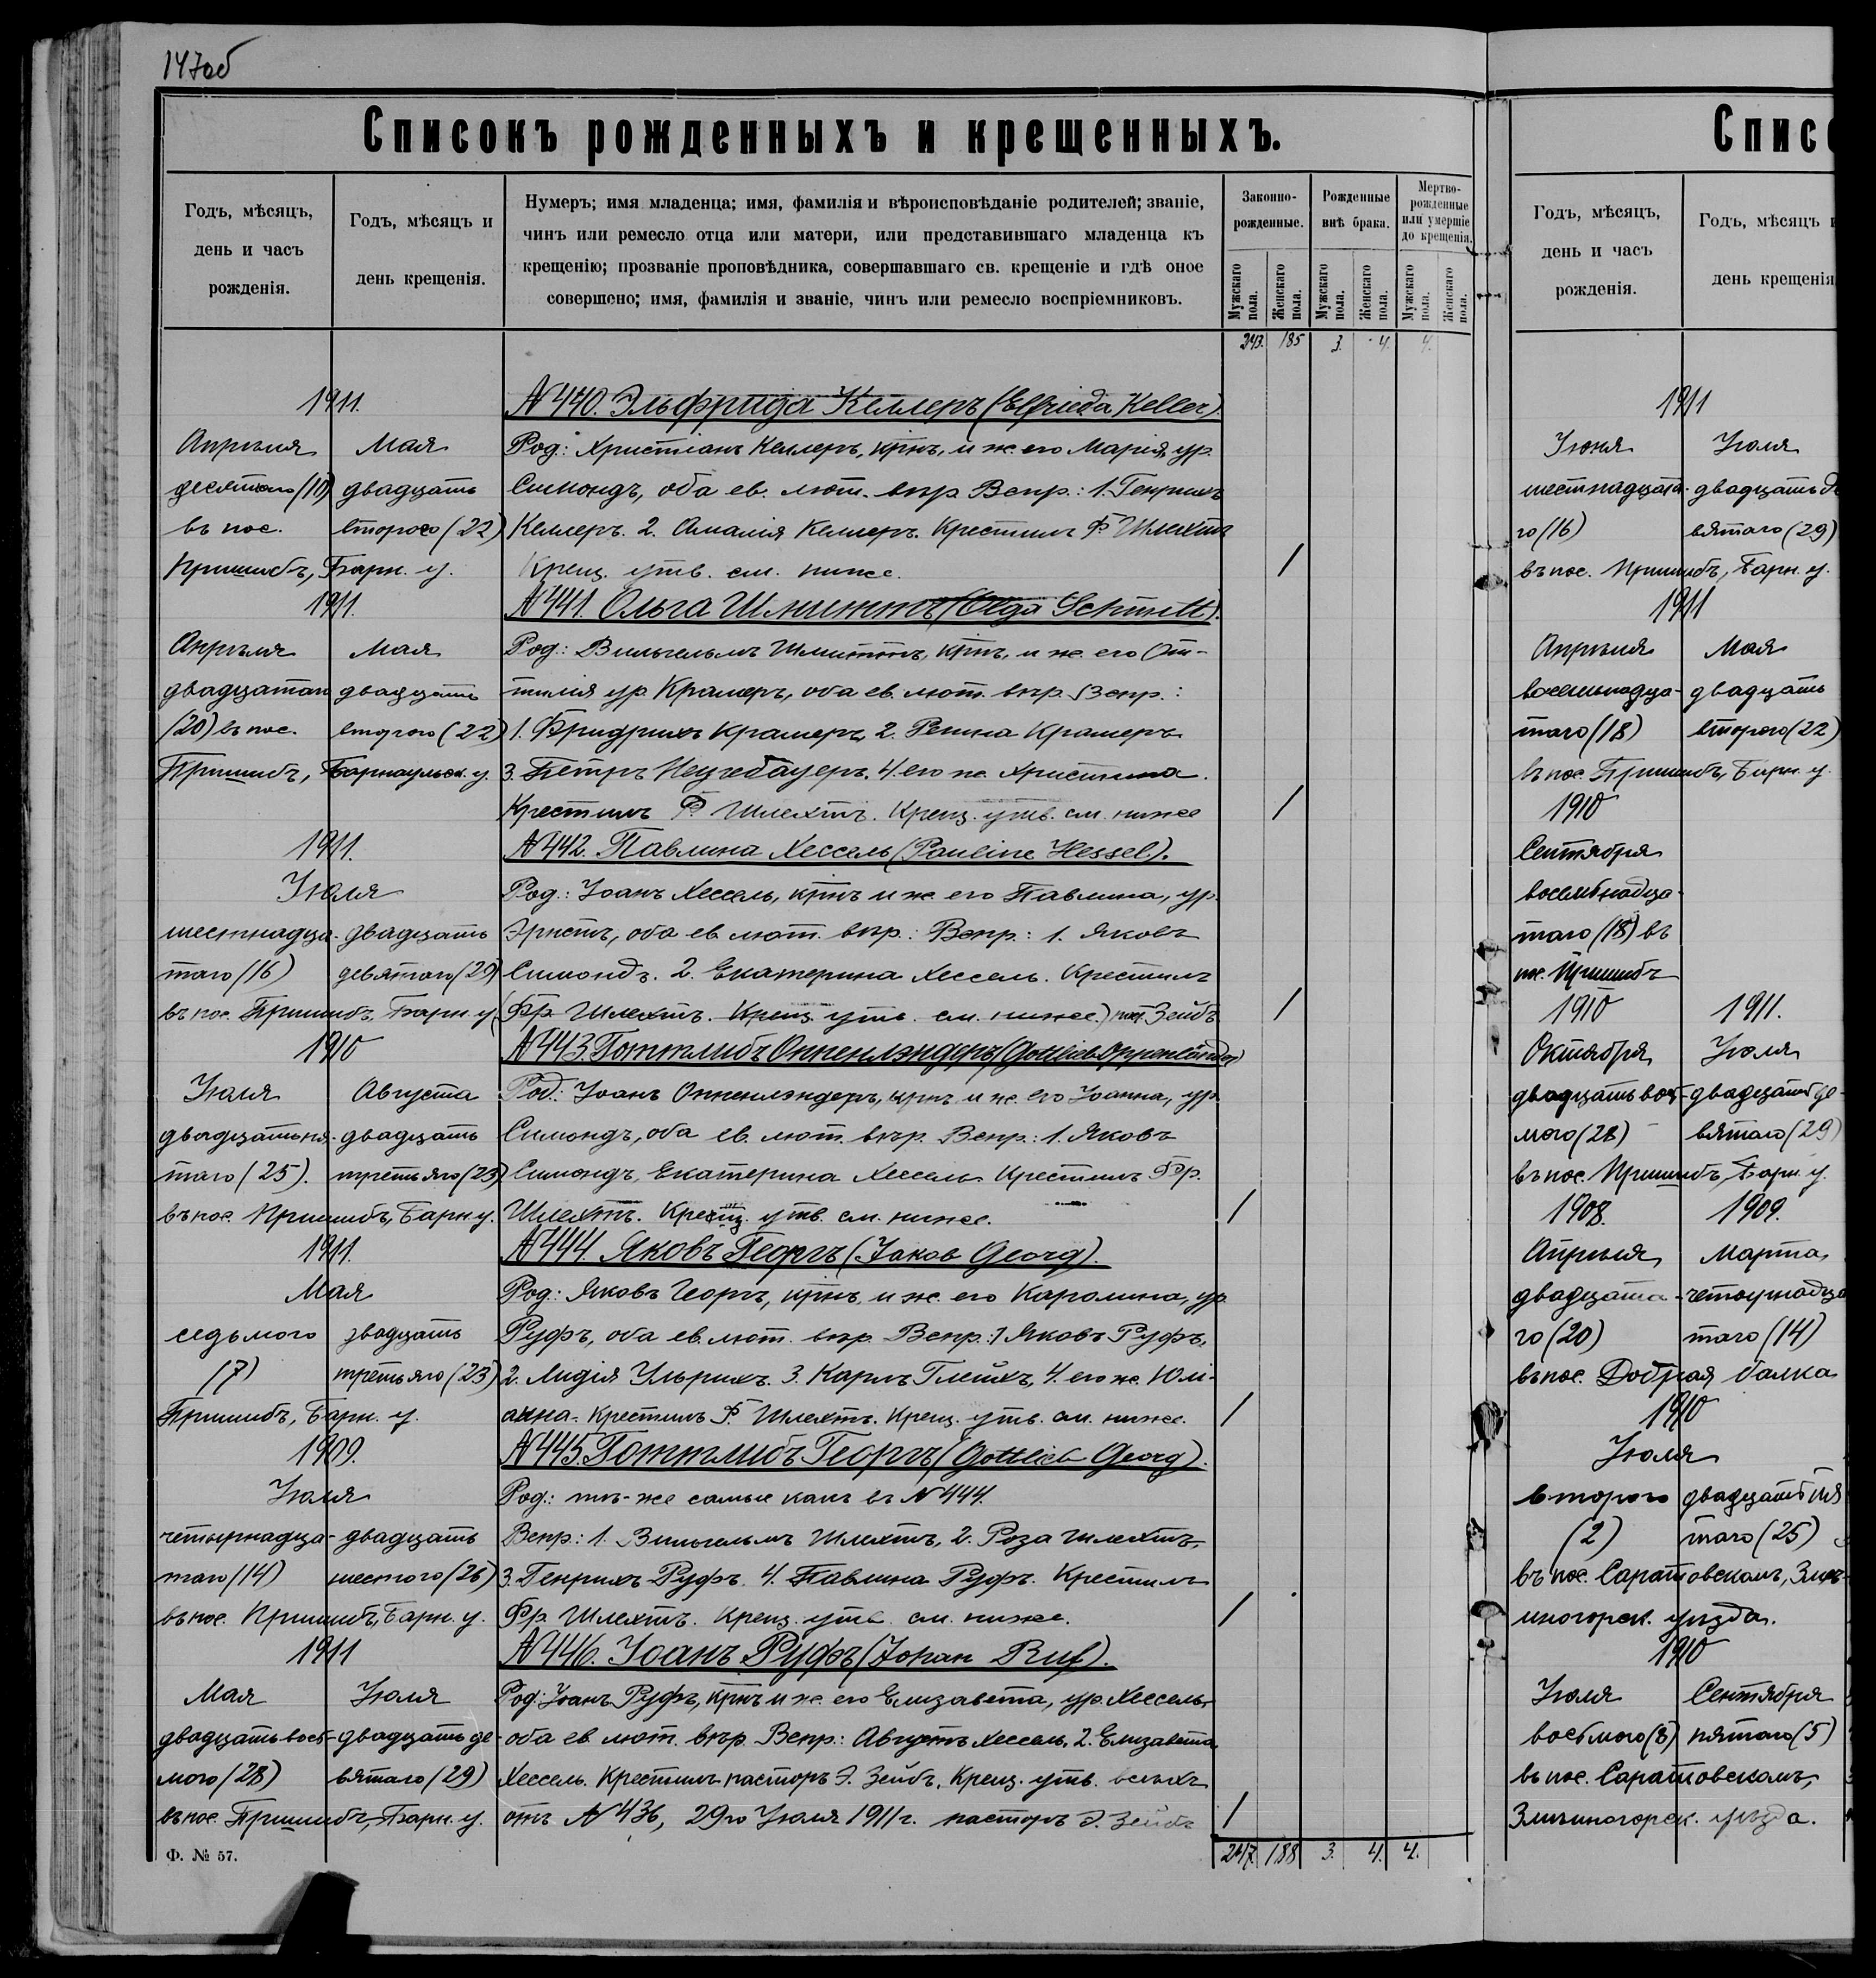 147об
Списокъ рожденныхъ и крещенныхъ.
Годъ, мѣсяцъ, день и часъ рожденія.
Годъ, мѣсяцъ и день крещенія.
Нумеръ; имя младенца; имя, фамилія и вѣроисповѣданіе родителей; званіе,
чинъ или ремесло отца или матери, или представившаго младенца къ
крещенію; прозваніе проповѣдника, совершавшаго св. крещеніе и гдѣ оное
совершено; имя, фамилія и званіе, чинъ или ремесло воспріемниковъ.
Законно-рожденные.
Рожденные внѣ брака.
Мертво-рожденные или умершіе до крещенія.
Мужскаго пола.
Женскаго пола.
Мужскаго пола.
Женскаго пола.
Мужскаго пола.
Женскаго пола.
243. 185 3. 4. 4.
1911. N 440. Эльфрида Келлеръ (Elfrieda Keller).
Апрѣля Мая Род.: Христіанъ Келлеръ, крнъ, и ж. его Марія, ур.
десятаго (10) двадцать Симондъ, оба ев. лют. вѣр. Вспр.: 1. Генрихъ
въ пос. второго (22) Келлеръ. 2. Амалія Келлеръ. Крестилъ Ф. Шлехтъ
Пришибъ, Барн. у. Крещ. утв. см. ниже. /
1911. N 441. Ольга Шмиттъ (Olga Schmitt).
Апрѣля Мая Род.: Вильгельмъ Шмиттъ, крнъ, и ж. его От-
двадцатаго двадцать тилія ур. Крамеръ, оба ев. лют. вѣр. Вспр.:
(20) въ пос. второго (22) 1. Фридрихъ Крамеръ, 2. Регина Крамеръ
Пришибъ, Барнаульск. у. 3. Петръ Нецгебауеръ. 4. его ж. Христина.
Крестилъ Ф. Шлехтъ. Крещ. утв. см. ниже /
1911. N 442. Павлина Хессель (Pauline Hessel).
Іюля Род.: Іоанъ Хессель, крнъ и ж. его Павлина, ур.
шестнадца- двадцать Эрнстъ, оба ев. лют. вѣр.: Вспр.: 1. Яковъ
таго (16) девятаго (29) Симондъ. 2. Екатерина Хессель. Крестилъ
въ пос. Пришибъ, Барн. у. (Фр. Шлехтъ. Крещ. утв. см. ниже.) паст. Зейбъ /
1910 N 443. Готтлибъ Оппенлэндеръ (Gottlieb Oppenländer)
Іюля Августа Род.: Іоанъ Оппенлэндеръ, крнъ и ж. его Іоанна, ур.
двадцать пя- двадцать Симондъ, оба ев. лют. вѣр. Вспр.: 1. Яковъ
таго (25). третьяго (23) Симондъ, Екатерина Хессель. Крестилъ Фр.
въ пос. Пришибъ, Барн. у. Шлехтъ. Крещ. утв. см. ниже. /
1911. N 444. Яковъ Георгъ (Jakob Georg).
Мая Род.: Яковъ Георгъ, крнъ, и ж. его Каролина, ур.
седьмого двадцать Руфъ, оба ев. лют. вѣр. Вспр.: 1 Яковъ Руфъ,
(7) третьяго (23) 2. Лидія Ульрихъ. 3. Карлъ Глейхъ, 4. его ж. Юлі-
Пришибъ, Барн. у. анна. Крестилъ Ф. Шлехтъ. Крещ. утв. см. ниже. /
1909. N 445. Готтлибъ Георгъ (Gottlieb Georg).
Іюля Род.: тѣ-же самые какъ въ N 444.
четырнадца- двадцать Вспр: 1. Вильгельмъ Шлехтъ, 2. Роза Шлехтъ,
таго (14) шестого (26) 3. Генрихъ Руфъ. 4. Павлина Руфъ. Крестилъ
въ пос. Пришибъ, Барн. у. Фр. Шлехтъ. Крещ. утв. см. ниже. /
1911 N 446. Іоанъ Руфъ (Johan Ruf).
Мая Іюля Род: Іоанъ Руфъ, крнъ и ж. его Елизавета, ур. Хессель,
двадцать вось- двадцать де- оба ев. лют. вѣр. Вспр.: Августъ Хессель, 2. Елизавета
мого (28) вятаго (29) Хессель. Крестилъ пасторъ Э. Зейбъ. Крещ. утв. всѣхъ
въ пос. Пришибъ, Барн. у. отъ N 436, 29го Іюля 1911 г. пасторъ Э. Зейбъ /
247. 188 3. 4. 4.
Ф. № 57.
Списо
Годъ, мѣсяцъ, день и часъ рожденія.
Годъ, мѣсяцъ и день крещенія
1911
Іюня Іюля
шестнадцата- двадцать де
го (16) вятаго (29)
въ пос. Пришибъ, Барн. у.
1911
Апрѣля Мая
восемнадца- двадцать
таго (18) второго (22)
въ пос. Пришибъ, Барн. у.
1910
Сентября
восемьнадца-
таго (18) въ
пос. Пришибъ
1910 1911.
Октября Іюля
двадцать вось- двадцать де-
мого (28) вятаго (29)
въ пос. Пришибъ, Барн. у.
1908. 1909.
Апрѣля Марта
двадцата- четырнадца
го (20) таго (14)
въ пос. Добрая балка
1910
Іюля
второго двадцать пя
(2) таго (25)
въ пос. Саратовскомъ, Змѣи-
иногорск. уѣзда.
1910
Іюля Сентября
восьмого (8) пятаго (5)
въ пос. Саратовскомъ,
Змѣиногорск. уѣзда.